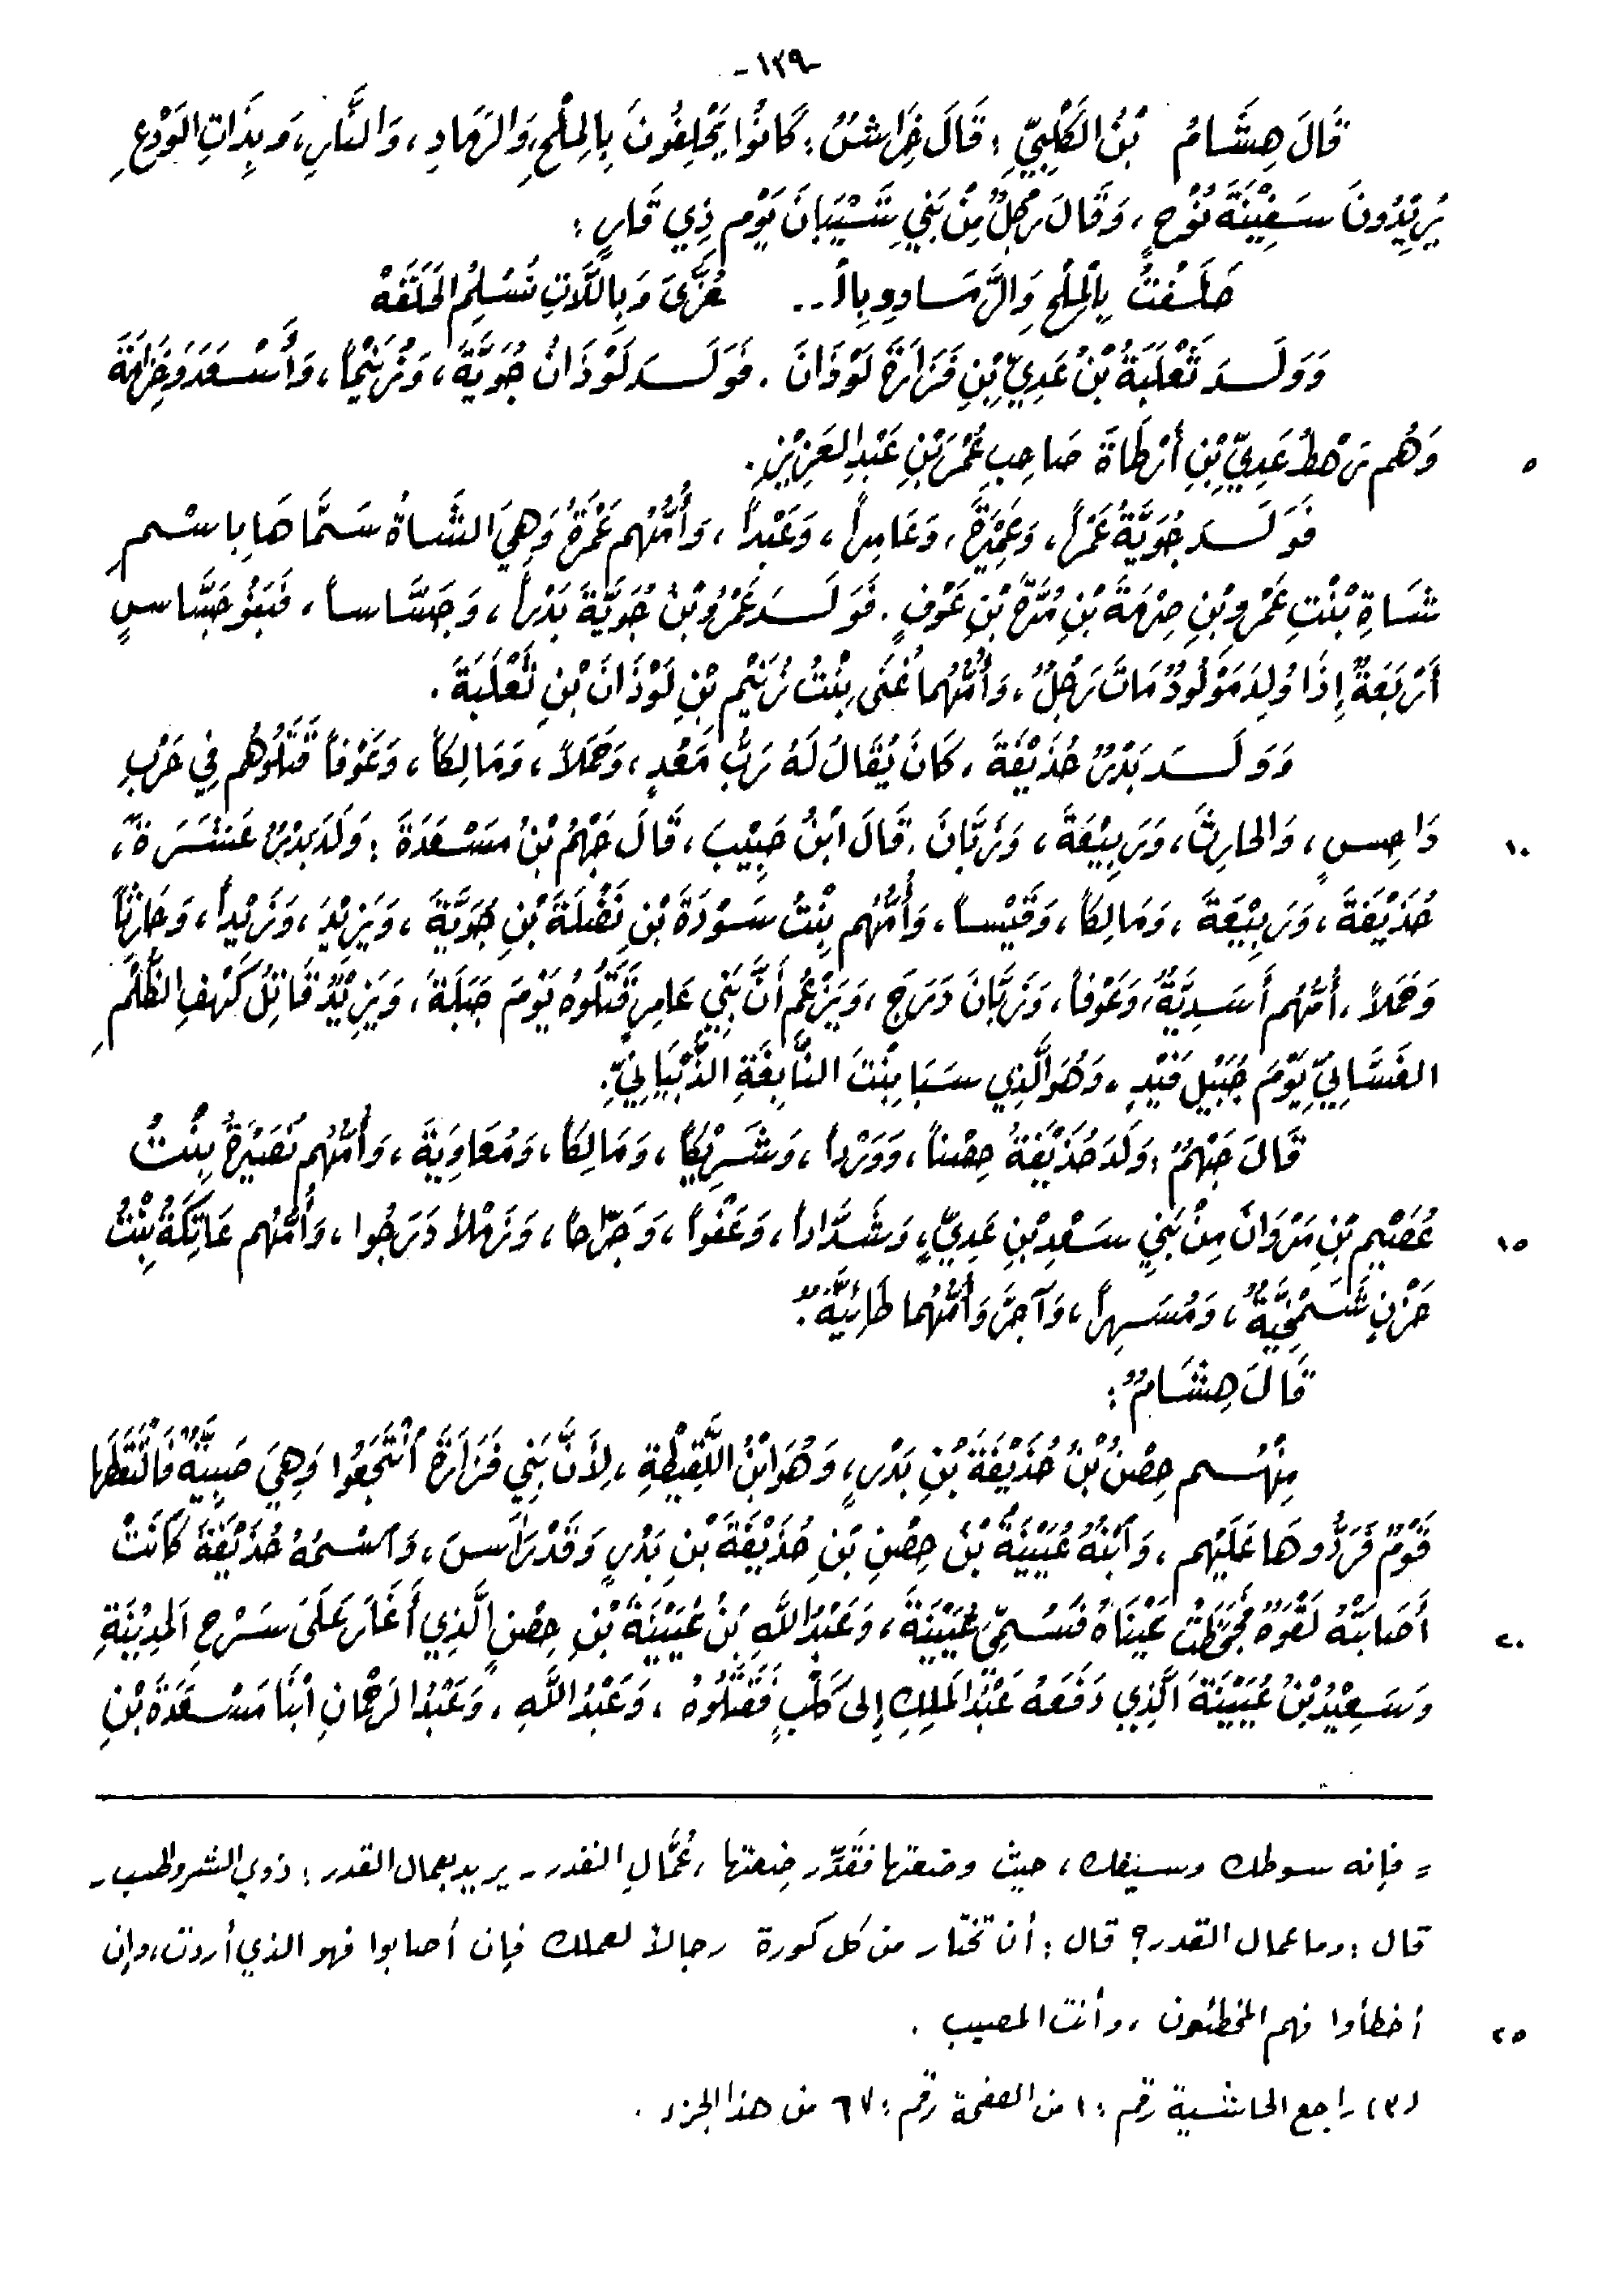 -١٣٩-
قَالَ هِشَامُ بْنُ الكَلْبِيِّ: قَالَ خِرَاشٌ: كَانُوا يَحْلِفُونَ بِالمِلْحِ، وَالرَمَادِ، وَالنَّارِ، وَبِذَاتِ الوَدْعِ
يُرِيْدُونَ سَفِيْنَةَ نُوْحٍ، وَقَالَ رَجُلٌ مِنْ بَنِي شَيْبَانَ يَوْمَ ذِي قَارٍ:
حَلَفْتُ بِالْمِلْحِ وَالرَّمَادِ وَبِالْـ.. عُزَّى وَبِاللَّاتِ نُسْلِمُ الحَلَقَهْ
وَوَلَدَ ثَعْلَبَةُ بْنُ عَدِيِّ بْنِ فَزَارَةَ لَوْذَانَ. فَوَلَدَ لَوْذَانُ جُوَيَّةَ، وَزُنَيْماً، وَأَسْعَدَ وَخِزَامَةَ
٥ وَهُم رَهْطُ عَدِيِّ بْنِ أَرْطَاةَ صَاحِبِ عُمَرَ بْنِ عَبْدِ العَزِيْزِ.
فَوَلَدَ جُوَيَّةُ عَمْراً، وَعَمِيْرَةَ، وَعَامِراً، وَعَبْداً، وَأُمُّهُم عَمْرَةُ وَهِيَ الشَّاةُ سَمَّاهَا بِاسْمِ
شَاةِ بِنْتِ عَمْرِو بْنِ صِرْمَةَ بْنِ مُرَّةَ بْنِ عَوْفٍ. فَوَلَدَ عَمْرُو بْنُ جُوَيَّةَ بَدْراً، وَجَسَّاساً، فَبَنُو جَسَّاسٍ
أَرْبَعَةٌ إِذَا وُلِدَ مَوْلُودٌ مَاتَ رَجُلٌ، وَأُمُّهُما غُنَى بِنْتُ زُنَيْمِ بْنِ لَوْذَانَ بْنِ ثَعْلَبَةَ.
وَوَلَدَ بَدْرٌ حُذَيْفَةَ، كَانَ يُقَالُ لَهُ رَبُّ مَعْدٍ، وَحَمَلاً، وَمَالِكاً، وَعَوْفاً قَتَلُوْهُم فِي حَرْبِ
١٠ دَاحِسٍ، وَالحَارِثَ، وَرَبِيْعَةَ، وَزَبَّانَ. قَالَ ابْنُ حَبِيْبَ، قَالَ جَهْمُ بْنُ مَسْعَدَةَ: وَلَدَ بَدْرٌ عَشَرَةً،
حُذَيْفَةَ، وَرَبِيْعَةَ، وَمَالِكاً، وَقَيْساً، وَأُمُّهُم بِنْتُ سَوْدَةَ بْنِ نَضْلَةَ بْنِ جُوَيَّةَ، وَيَزِيْدَ، وَزَيْداً، وَحَارِثاً
وَحَمَلاً، أُمُّهُم أَسَدِيَّةٌ، وَعَوْفاً، وَزَبَّانَ دَرَجَ، وَيَزْعُم أَنَّ بَنِي عَامِرٍ قَتَلُوهُ يَوْمَ جَبَلَةَ، وَيَزِيْدُ قَاتِلُ كَهْفِ الظُّلْمِ
الغَسَّانِيِّ يَوْمَ جُبَيْلِ فَيْدٍ، وَهُوَ الَّذِي سَبَا بِنْتَ النَّابِغَةِ الذُّبْيَانِيِّ.
قَالَ جَهْمٌ: وَلَدَ حُذَيْفَةُ حِصْناً، وَوَرْداً، وَشَرِيْكاً، وَمَالِكاً، وَمُعَاوِيَةَ، وَأُمُّهُم نُضَيْرَةُ بِنْتُ
١٥ عُصَيْمِ بْنِ مَرْوَانَ مِنْ بَنِي سَعْدِ بْنِ عَدِيٍّ، وَشَدَّاداً، وَعَفْواً، وَجَرَّاحاً، وَزَمْلاً دَرَجُوا، وَأُمُّهُم عَاتِكَةُ بِنْتُ
حَزْنٍ شَمْخِيَّةٌ، وَمُسْهِراً، وَآجَرَ وَأُمُّهُما طَائِيَّةٌ.
قَالَ هِشَامٌ:
مِنْهُم حِصْنُ بْنُ حُذَيْفَةَ بْنِ بَدْرٍ، وَهُوَ ابْنُ اللَّقِيْطَةِ، لِأَنَّ بَنِي فَزَارَةَ انْتَجَعُوا وَهِيَ صَبِيَّةٌ فَالْتَقَطَهَا
قَوْمٌ فَرَدُّوهَا عَلَيْهِم، وَابْنُهُ عُيَيْنَةُ بْنُ حِصْنِ بْنِ حُذَيْفَةَ بْنِ بَدْرٍ وَقَدْ رَأَسَ، وَاسْمُهُ حُذَيْفَةُ كَانَتْ
٢٠ أَصَابَتْهُ لَقْوَةٌ فَجَحَظَتْ عَيْنَاهُ فَسُمِّيَ عُيَيْنَةَ، وَعَبْدُ اللَّهِ بْنُ عُيَيْنَةَ بْنِ حِصْنٍ الَّذِي أَغَارَ عَلَى سَرْحِ الْمَدِيْنَةِ
وَسَعِيْدُ بْنُ عُيَيْنَةَ الَّذِي دَفَعَهُ عَبْدُ المَلِكِ إِلى كَلْبٍ فَقَتَلُوْهُ، وَعَبْدُ اللَّهِ، وَعَبْدُ الرَحْمَانِ ابْنَا مَسْعَدَةَ بْنِ
= فإنه سوطك وسيفك، حيث وضعتها فقدّر ضِعتها، عُمَّالِ القدر - يريد بعمال القدر: ذوي الشروط -
قال: وما عمال القدر؟ قال: أن تختار من كل كورة رجالاً لعملك فإن أصابوا فهو الذي أردت، وإن
٢٥ أخطأوا فهم المخطئون، وأنت المصيب.
(٣) راجع الحاشية رقم: ١ من الصفحة رقم: ٦٧ من هذا الجزء.